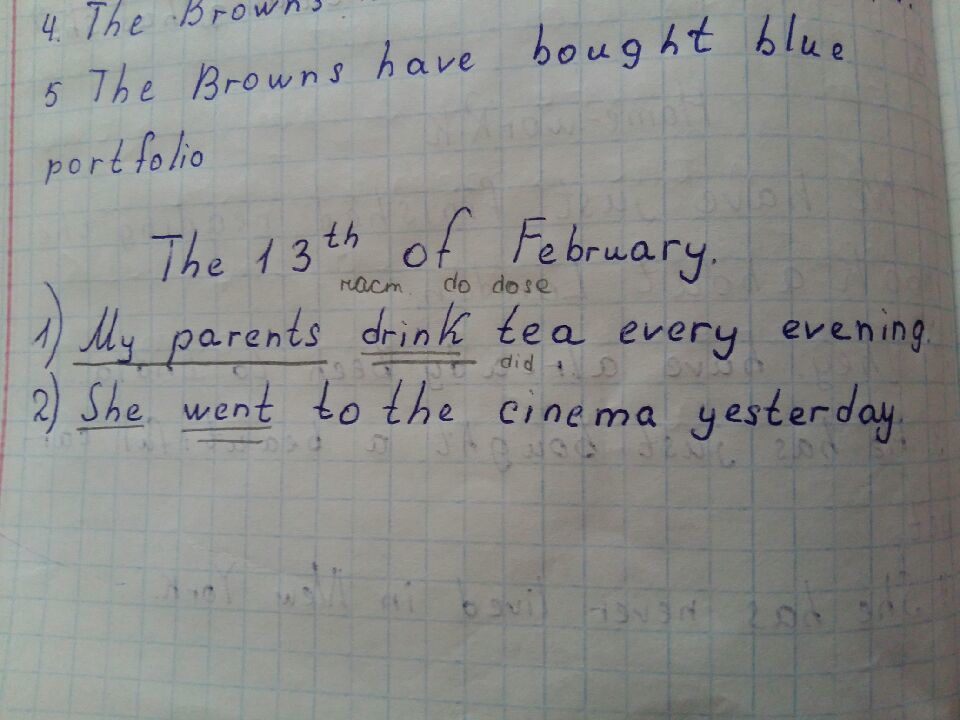 4. The Browns
5 The Browns have bought blue
portfolio
The 13th of February.
наст. do dose
1) My parents drink tea every evening.
did.
2) She went to the cinema yesterday.